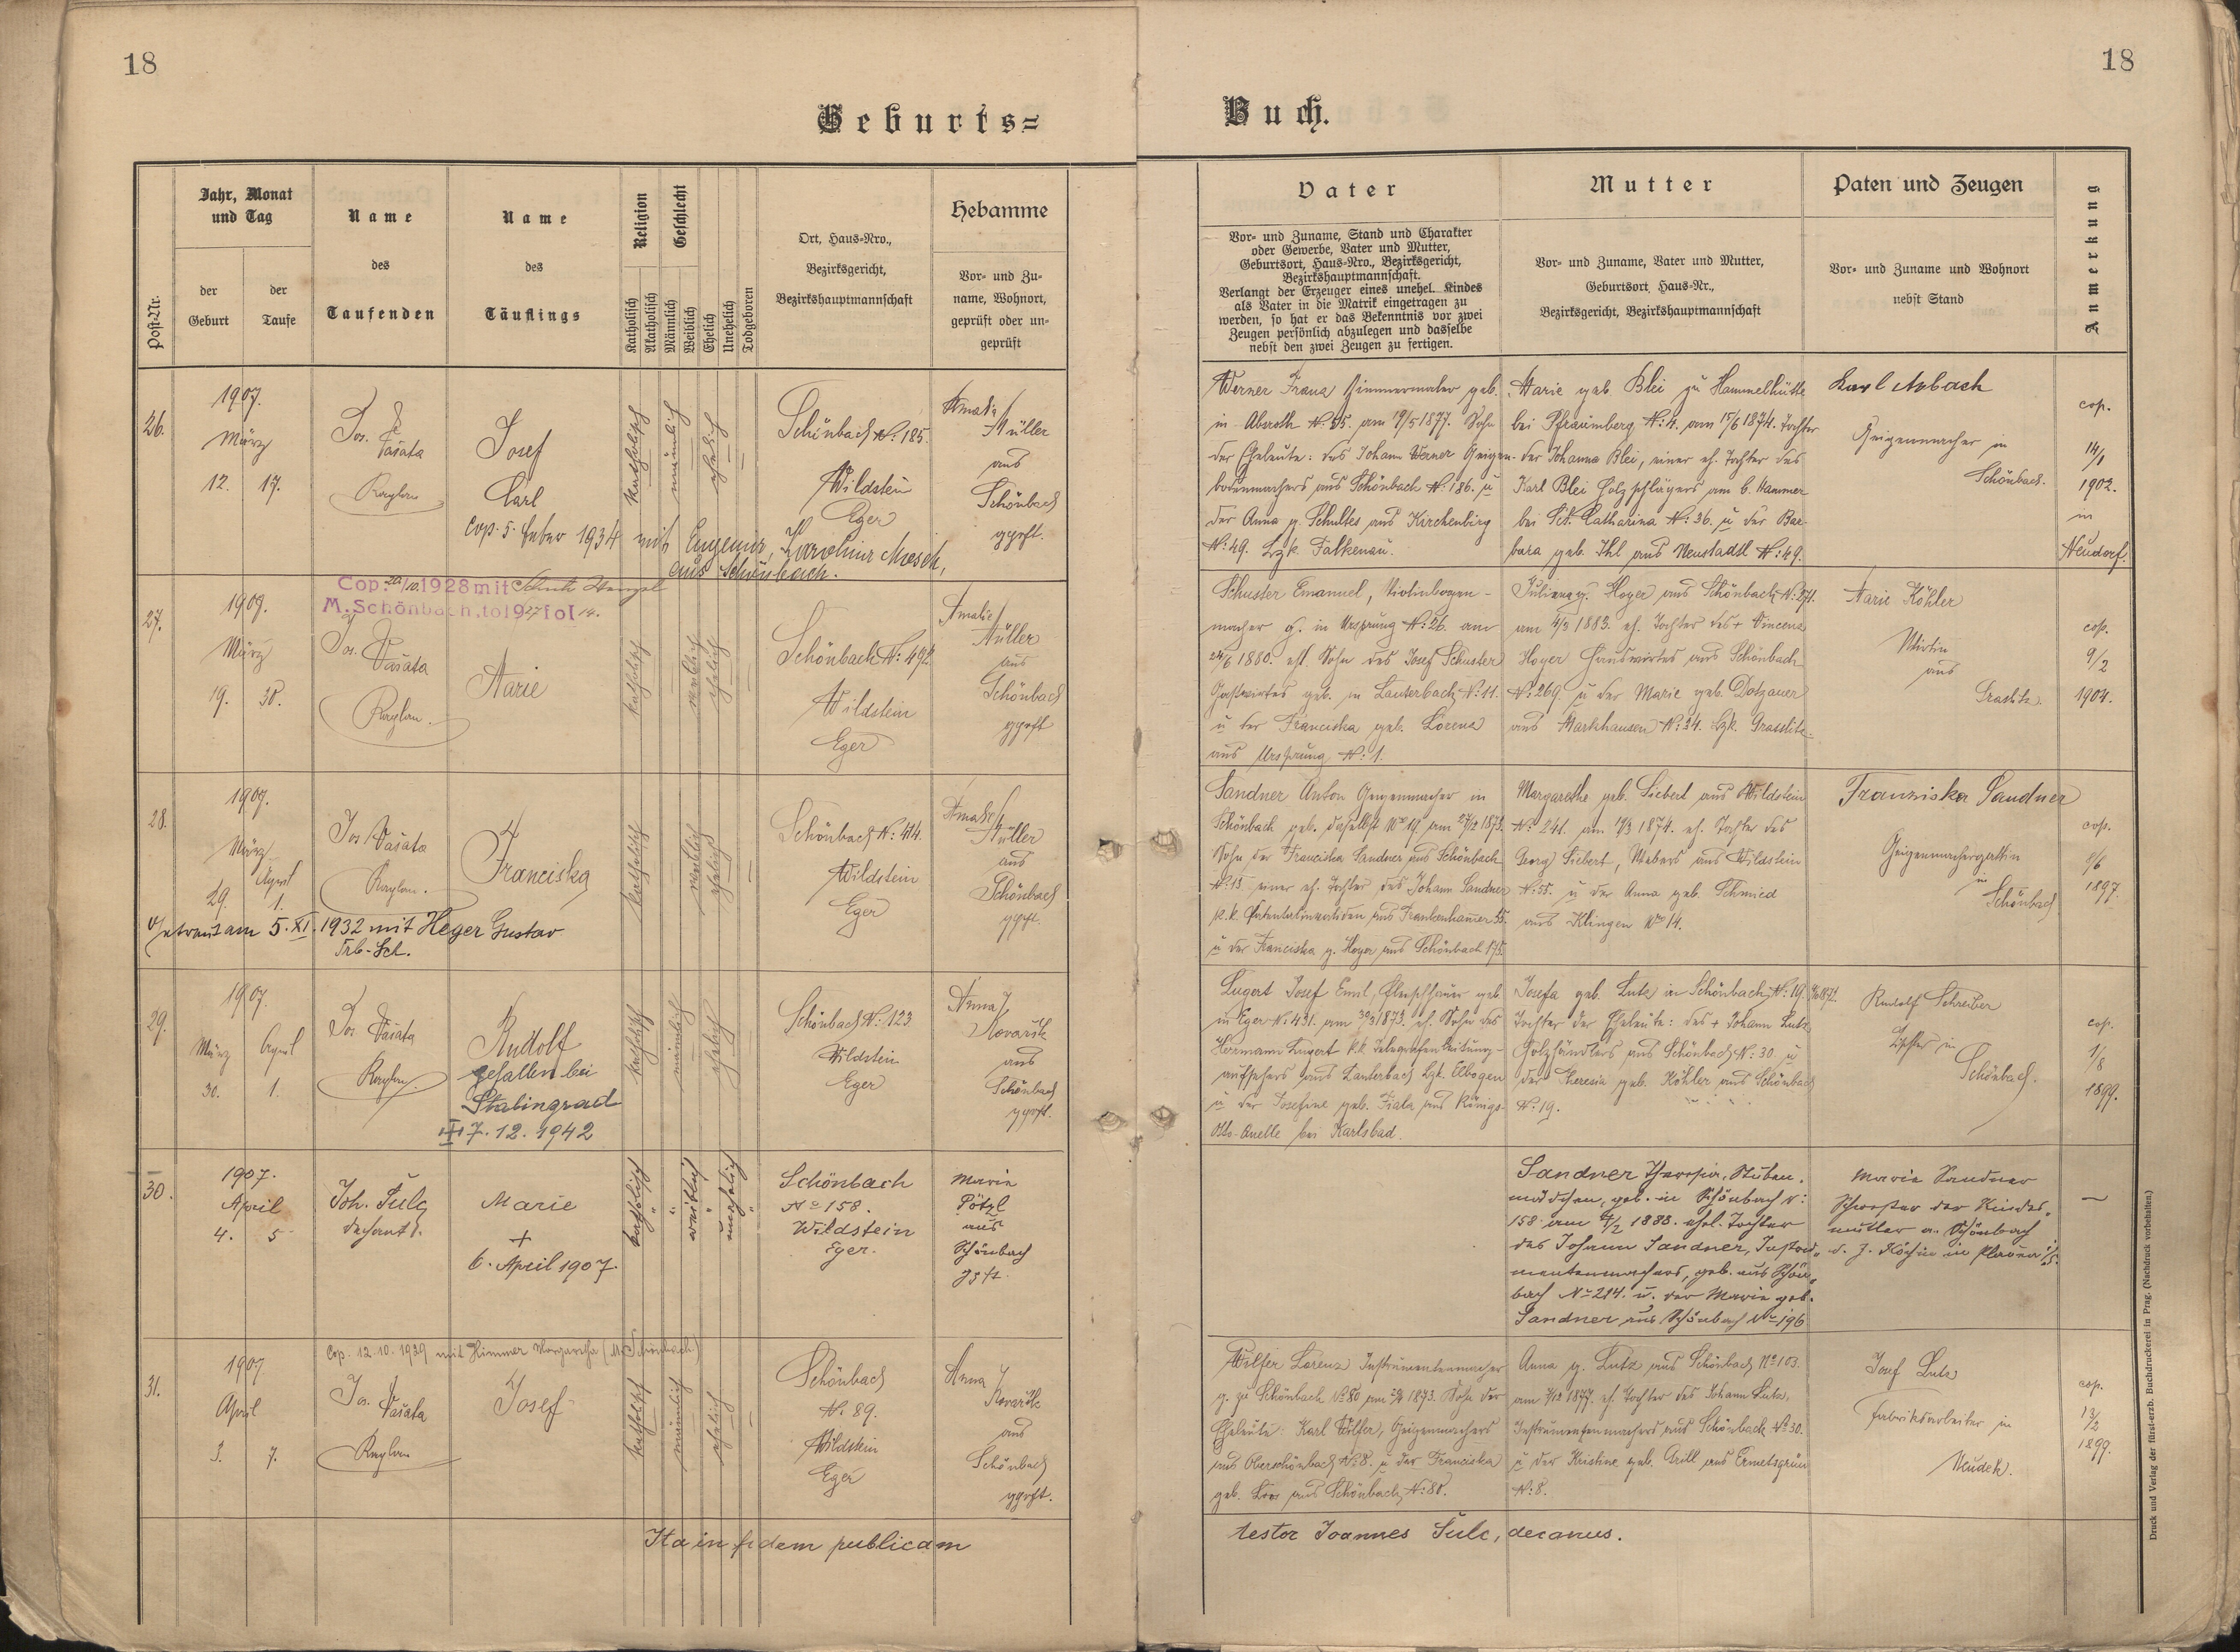 18
18
Geburts=
Buch.
Post-Nr.
Jahr, Monat
und Tag
der
Geburt
der
Taufe
Name
des
Taufenden
Name
des
Täuflings
Religion
Katholisch
Akatholisch
Geschlecht
Männlich
Weiblich
Ehelich
Unehelich
Todgeboren
Ort, Haus-Nro.,
Bezirksgericht,
Bezirkshauptmannschaft
Hebamme
Vor- und Zu-
name, Wohnort,
geprüft oder un-
geprüft
Vater
Vor- und Zuname, Stand und Charakter
oder Gewerbe, Vater und Mutter,
Geburtsort, Haus-Nro., Bezirksgericht,
Bezirkshauptmannschaft.
Verlangt der Erzeuger eines unehel. Kindes
als Vater in die Matrik eingetragen zu
werden, so hat er das Bekenntnis vor zwei
Zeugen persönlich abzulegen und dasselbe
nebst den zwei Zeugen zu fertigen.
Mutter
Vor- und Zuname, Vater und Mutter,
Geburtsort, Haus-Nr.,
Bezirksgericht, Bezirkshauptmannschaft
Paten und Zeugen
Vor- und Zuname und Wohnort
nebst Stand
Anmerkung
26.
1907.
März
12. 17.
Jos.
Vašata
Kaplan
Josef
Carl
katholisch
männlich
ehelich
Schönbach N: 185.
Wildstein
Eger
Amalie
Müller
aus
Schönbach
gpft.
cop. 5. feber 1934 mit Eugenie, Karoline Mosch,
aus Schönbach.
Werner Franz Zimmermaler geb.
in Absroth N: 55. am 19/5 1877. Sohn
der Eheleute: des Johann Werner Geigen-
bodenmachers aus Schönbach N: 186. u
der Anna g. Schultes aus Kirchenbirg
N: 49. Bzk. Falkenau.
Marie geb. Blei zu Hammelhütte
bei Pfraumberg N: 4. am 15/6 1874. Tochter
der Johanna Blei, einer eh. Tochter des
Karl Blei Holzschlägers am b. Hammer
bei Sct. Catharina N: 36. u der Bar-
bara geb. Ihl aus Neustadtl N: 49.
Karl
Geigenmacher in
Schönbach.
cop.
14/1
1902.
in
Neudorf.
27.
Cop. 20/10. 1928 mit
M. Schönbach, to 1927 fol 14.
1907.
März
19. 30.
Jos.
Vašata
Kaplan.
Marie
katholisch
weiblich
ehelich
Schönbach N: 492.
Wildstein
Eger
Amalie
Müller
aus
Schönbach
gpft
Schuster Emanuel, Violinbogen-
macher g. in Ursprung N: 26. am
24/6 1880. ehl. Sohn des Josef Schuster
Gastwirtes geb. in Lauterbach N: 11.
u der Franciska geb. Lorenz
aus Ursprung N: 1.
Juliena g. Hoyer aus Schönbach N: 271.
am 4/3 1883. eh. Tochter des + Vincenz
Hoyer Hauswirtes aus Schönbach
N: 269 u der Marie geb. Dotzauer
aus Markhausen N: 34. Bzk. Grasslitz
Marie Köhler
Wirtin
aus
Graslitz.
cop.
9/2
1904.
28.
1907.
März April
29. 1.
Jos Vašata
Kaplan.
Franciska
katholisch
weiblich
ehelich
Schönbach N: 414.
Wildstein
Eger
Amalie
Müller
aus
Schönbach
gpft.
Getraut am 5. XI. 1932 mit Heger Gustav
Trb.-Sch.
Sandner Anton Geigenmacher in
Schönbach geb. daselbst No 19. am 1873.
Sohn der Franciska Sandner aus Schönbach
N: 15 einer eh. Tochter des Johann Sandner
k.k. Patentalinvaliden aus Frankenhamer 55.
u der Franciska g. Hoyer aus Schönbach 175.
Margarethe geb. Siebert aus Wildstein
N: 241. am 1874. eh. Tochter des
Georg Siebert, Webers aus Wildstein
N: 55. u der Anna geb. Schmied
aus Klingen No 14.
Franziska Sandner
Geigenmachersgattin
in
Schönbach
cop.
1897.
29.
1907.
März April
30. 1.
Jos. Vašata
Kaplan.
Rudolf
gefallen bei
Stalingrad
7. 12. 1942
katholisch
männlich
ehelich
Schönbach N: 123
Wildstein
Eger
Anna
Kovařík
aus
Schönbach
gpft.
Lugert Josef Emil, Fleischhauer geb
in Eger N: 431. am 30/3 1873. eh. Sohn des
Herrmann Lugert k.k. Telegrafen Leitungs-
aufsehers aus Lauterbach Bzk. Elbogen
u der Josefine geb. Fiala aus Königs-
Otto-Quelle bei Karlsbad.
Josefa geb. Lutz in Schönbach N: 19.
Tochter der Eheleute: des + Johann Lutz
Holzhändlers aus Schönbach N: 30 u
der Theresia geb. Köhler aus Schönbach
N: 19.
Rudolf Schreiber
in
Schönbach.
cop.
1/8
1899.
30.
1907.
April
4. 5
Joh. Šulc
dechant.
Marie
+
6. April 1907.
katholisch
weiblich
unehelich
Schönbach
No 158.
Wildstein
Eger.
Marie
Pötzl
aus
Schönbach
gpft.
Sandner Theresia, Stuben-
mädchen, geb. in Schönbach N:
158 am 1888. ehel. Tochter
des Johann Sandner, Instru-
mentenmachers, geb. aus Schön-
bach No 214. u. der Marie geb.
Sandner aus Schönbach No 196
Marie Sandner
Schwester der Kindes-
mutter a. Schönbach
d. Z. Köchin in Plauen i/S.
—
31.
Cop. 12. 10. 1929 mit Himmer Margaretha (M. Schönbach)
1907.
April
3. 7.
Jos.
Vašata
Kaplan
Josef
katholisch
männlich
ehelich
Schönbach
N: 89.
Wildstein
Eger
Anna
Kovařík
aus
Schönbach
gpft.
Wilfer Lorenz Instrumentenmacher
g. zu Schönbach No 80 am 1873. Sohn der
Eheleute: Karl Wilfer, Geigenmachers
aus Oberschönbach No 8. u der Franciska
geb. aus Schönbach N: 80.
Anna g. Lutz aus Schönbach No 103.
am 1877. eh. Tochter des Johann Lutz,
Instrumentenmachers aus Schönbach No 30.
u der Kristine geb. Grill aus Ermetsgrün
N: 8.
Josef Lutz
Fabriksarbeiter in
Neudek.
cop.
13/2
1899.
Ita in fidem publicam
testor Joannes Šulc, decanus.
Druck und Verlag der fürst-erzb. Buchdruckerei in Prag. (Nachdruck vorbehalten.)